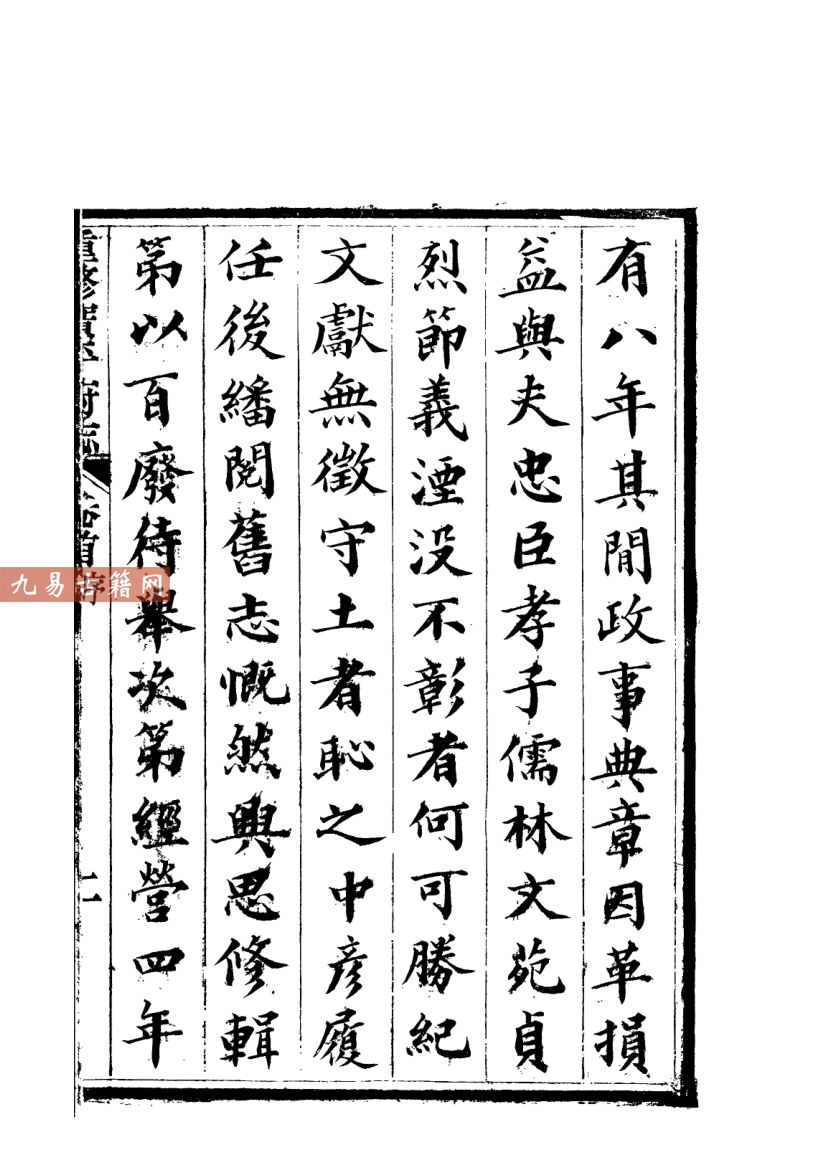 有八年其閒政事典章因革損
益與夫忠臣孝子儒林文苑貞
烈節義湮没不彰者何可勝紀
文獻無徵守土者恥之中彥履
任後繙閱舊志慨然興思修輯
第以百廢待舉次第經營四年
重修 府志
卷首序
二
九易古籍网